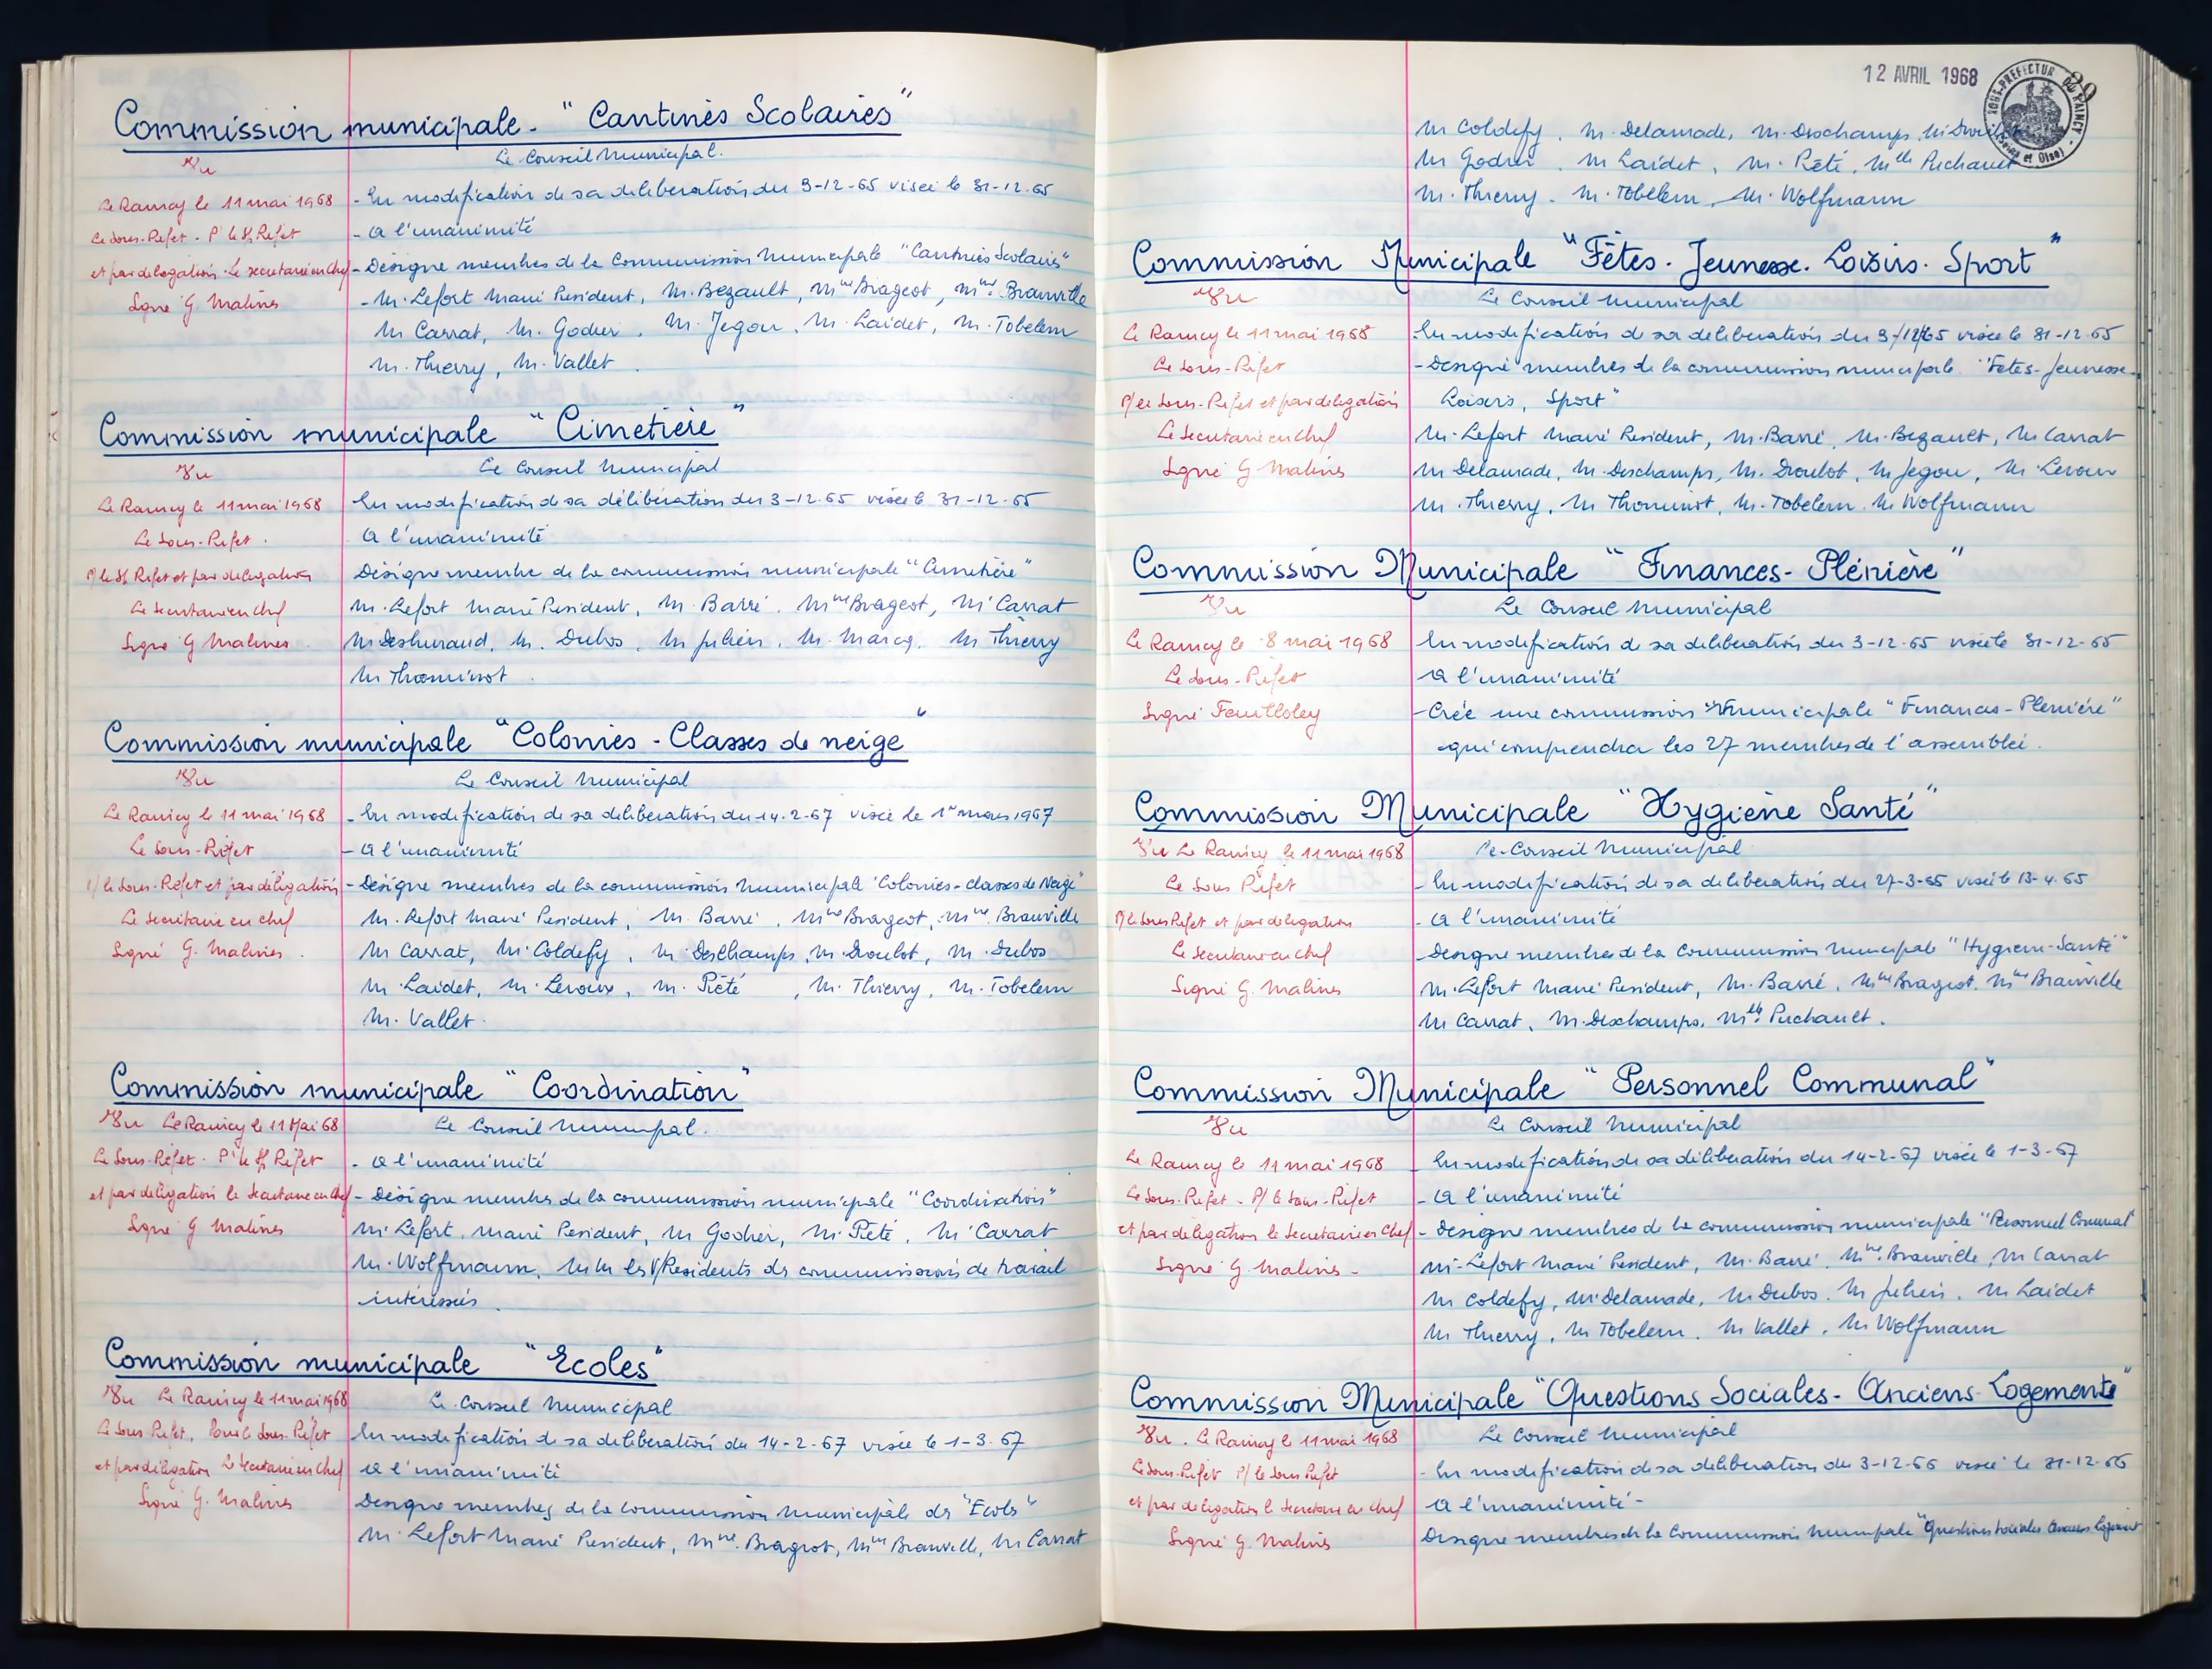 Commission municipale - "Cantines Scolaires"
Vu
Le Conseil Municipal.
Le Raincy le 11 mai 1968
- En modification de sa deliberation du 3-12-65 visée le 31-12-65
Le Sous-Préfet - P le S/Préfet
- à l'unanimité
et par delegation - Le secretaire en chef
- Désigne membres de la Commission Municipale "Cantines Scolaires"
Signé G. Malines
- M. Lefort Maire President, M. Bezault, Mme Brageot, Mme Branville
M Carrat, M. Godier, M. Jegou, M. Laidet, M. Tobelem
M. Thierry, M. Vallet.
Commission municipale "Cimetière"
Vu
Le Conseil Municipal
Le Raincy le 11 mai 1968
En modification de sa délibération du 3-12-65 visée le 31-12-65
Le Sous-Préfet.
à l'unanimité
P/ le S/ Préfet et par delegation
Désigne membre de la commission municipale "Cimetière"
Le Secretaire en chef
M. Lefort Maire President, M. Barré, Mme Brageot, M Carrat
Signé G Malines
M. Dubos, M Julien, M. Marcq, M Thierry
M Thominot.
Commission municipale "Colonies - Classes de neige"
Vu
Le Conseil Municipal
Le Raincy le 11 mai 1968
- En modification de sa deliberation du 14-2-67 visée le 1er mars 1967
Le Sous-Préfet
- à l'unanimité
P/ le Sous-Préfet et par délégation
- Désigne membres de la commission Municipale "Colonies-classes de Neige"
Le Secrétaire en chef
M. Lefort Maire President, M. Barré, Mme Brageot, Mme Branville
Signé G. Malines.
M Carrat, M. Coldefy, M Deschamps, M. Droulot, M. Dubos
M. Laidet, M. Leroux, M. Piété, M. Thierry, M. Tobelem
M. Vallet.
Commission municipale "Coordination"
Vu Le Raincy le 11 Mai 68
Le Conseil Municipal.
Le Sous-Préfet - Pr le S/ Préfet
- à l'unanimité
et par delegation le Secretaire en chef
- Désigne membres de la commission municipale "Coordination"
Signé G Malines
M. Lefort, maire President, M Godier, M. Piété, M. Carrat
M. Wolfmann, MM les V/Présidents des commissions de travail
intéressés.
Commission municipale "Ecoles"
Vu Le Raincy le 11 mai 1968
Le Conseil Municipal
Le Sous-Préfet, Pour le Sous-Préfet
En modification de sa deliberation du 14-2-67 visée le 1-3-67
et par délégation Le Secretaire en Chef
à l'unanimité
Signé G. Malines
Designe membres de la commission municipale des "Ecoles"
M. Lefort Maire President, Mme Brageot, Mme Branville, M Carrat
12 AVRIL 1968
M Coldefy, M. Delamade, M. Deschamps, M Droulot
M Godier, M Laidet, M. Piété, Melle Puchault
M. Thierry, M. Tobelem, M. Wolfmann
Commission Municipale "Fêtes. Jeunesse. Loisirs. Sport"
Vu
Le Conseil Municipal
Le Raincy le 11 mai 1968
En modification de sa deliberation du 3/12/65 visée le 31-12-65
Le Sous-Préfet
- Designe membres de la commission municipale "Fêtes-Jeunesse-
P/ le Sous-Préfet et par delegation
Loisirs, Sport"
Le Secretaire en Chef
M. Lefort Maire President, M. Barré, M. Bezault, M Carrat
Signé G Malines
M Delamade, M. Deschamps, M. Droulot, M Jegou, M Leroux
M. Thierry, M Thominot, M. Tobelem, M Wolfmann
Commission Municipale "Finances - Plénière"
Vu
Le Conseil Municipal
Le Raincy le 8 mai 1968
En modification de sa deliberation du 3-12-65 visée le 31-12-65
Le Sous-Préfet
à l'unanimité
Signé Feuilloley
- Crée une commission municipale "Finances-Plénière"
qui comprendra les 27 membres de l'assemblée.
Commission Municipale "Hygiène Santé"
Vu Le Raincy le 11 mai 1968
Le Conseil Municipal
Le Sous Préfet
- En modification de sa deliberation du 27-3-65 visée le 13-4-65
P/ le Sous Préfet et par delegation
- à l'unanimité
Le Secretaire en chef
- Designe membres de la Commission Municipale "Hygiène-Santé"
Signé G. Malines
M. Lefort Maire President, M. Barré, Mme Brageot, Mme Branville
M Carrat, M. Deschamps, Melle Puchault.
Commission Municipale "Personnel Communal"
Vu
Le Conseil Municipal
Le Raincy le 11 mai 1968
En modification de sa délibération du 14-2-67 visée le 1-3-67
Le Sous-Préfet - P/ le Sous-Préfet
- à l'unanimité
et par délégation le Secretaire en Chef
- Designe membres de la commission municipale "Personnel Communal"
Signé G. Malines -
M. Lefort Maire President, M. Barré, Mme Branville, M Carrat
M Coldefy, M. Delamade, M Dubos, M Julien, M Laidet
M Thierry, M Tobelem, M Vallet, M Wolfmann
Commission Municipale "Questions Sociales - Anciens - Logements"
Vu. Le Raincy le 11 mai 1968
Le Conseil Municipal
Le Sous-Préfet P/ le Sous Préfet
- En modification de sa deliberation du 3-12-66 visée le 31-12-66
et par delegation le Secretaire en chef
à l'unanimité -
Signé G. Malines
Designe membres de la Commission Municipale "Questions Sociales Anciens Logement